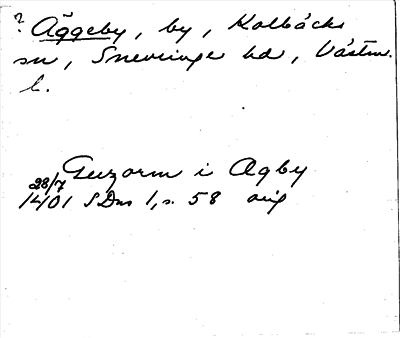 ? Äggeby, by, Kolbäcks
sn, Snevringe hd, Västm.
l.
Guzorm i Agby
28/7
1401 SDns 1, s. 58 orig